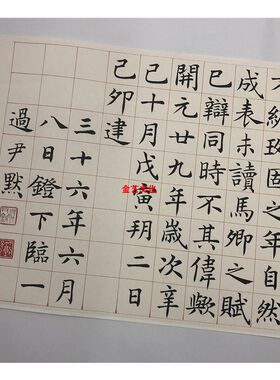 班固之自然
成表未讀馬卿之賦
已辯同時不其偉歟
開元廿九年歲次辛
巳十月戊寅朔二日
己卯建
三十六年六月
八日鐙下臨一
過尹默